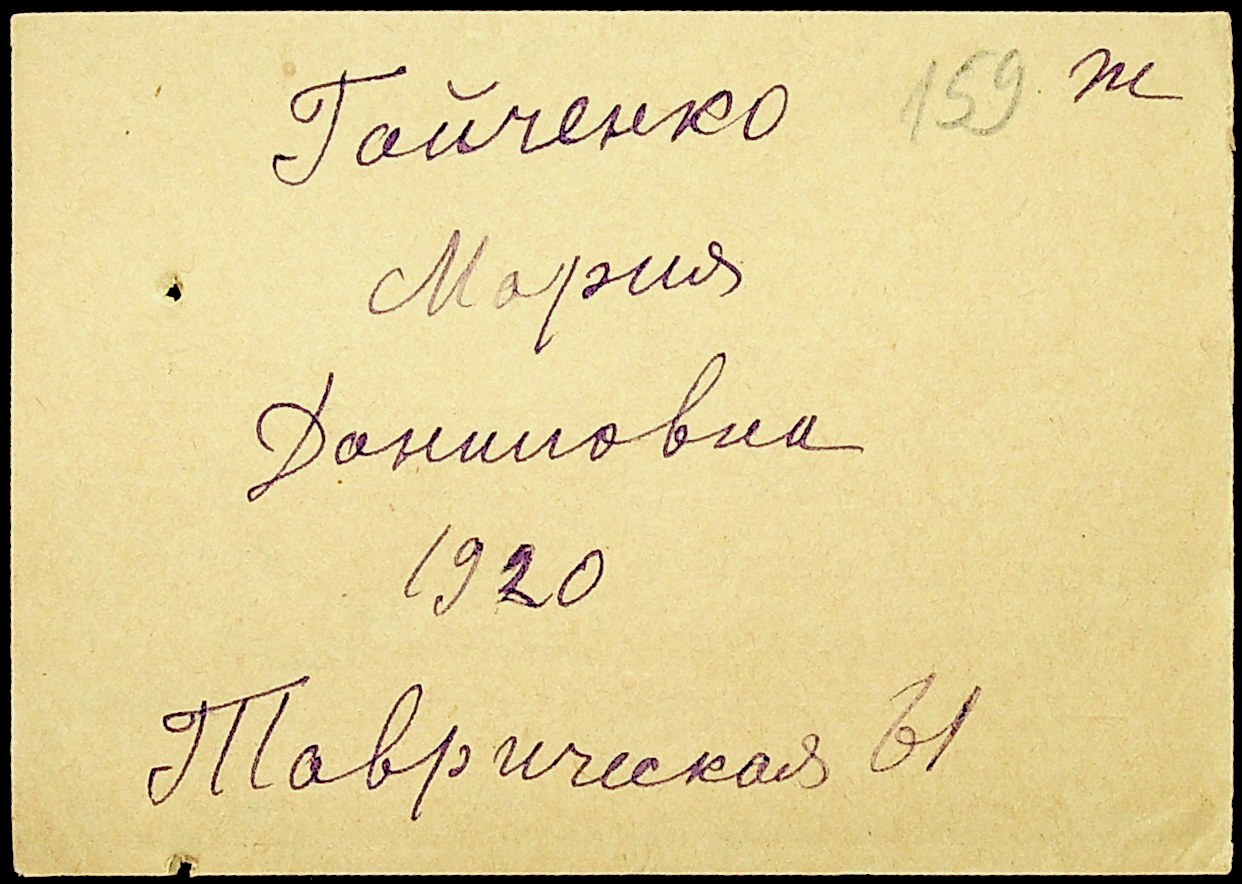 Гайченко 159 ж
Мария
Даниловна
1920
Таврическая 61